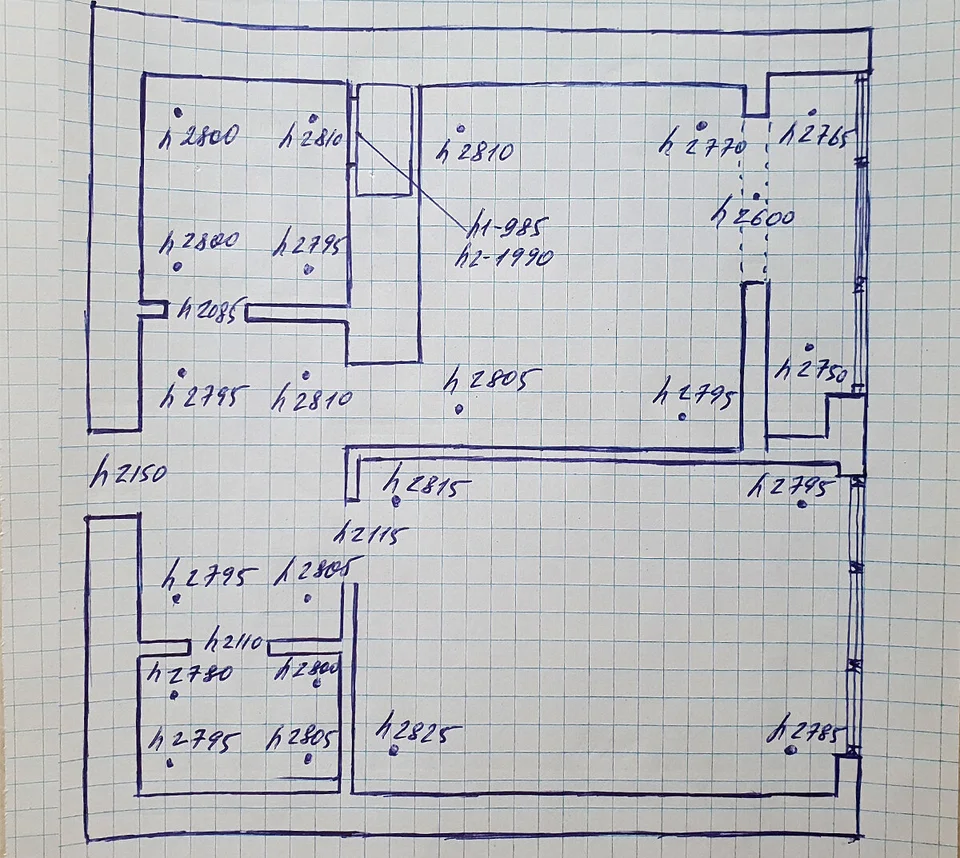 h2800
h2810
h2810
h2770
h2765
h2600
h1-985
h2-1990
h2800
h2795
h2085
h2750
h2795
h2810
h2805
h2795
h2150
h2815
h2795
h2115
h2795
h2805
h2110
h2780
h2800
h2795
h2805
h2825
h2785